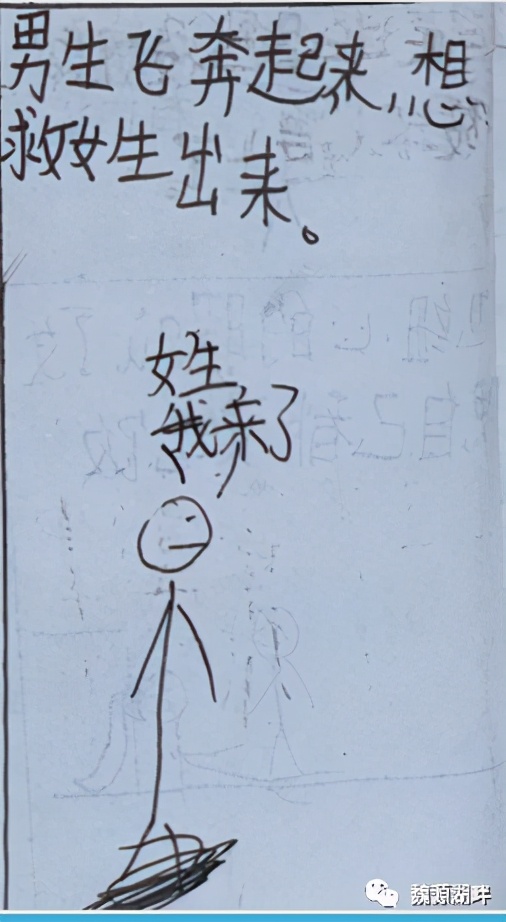 男生飞奔起来,想
救女生出来。
女生,
我来了
魏頭湖畔